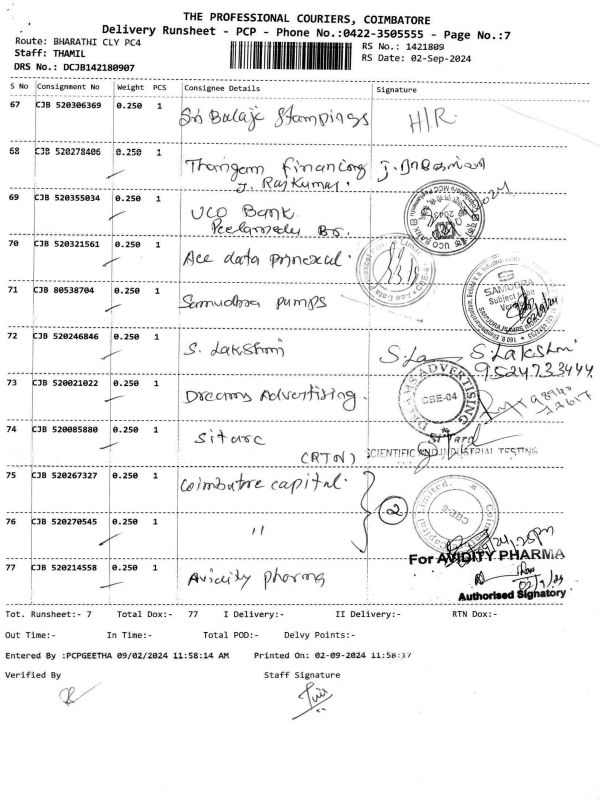 THE PROFESSIONAL COURIERS, COIMBATORE
Delivery Runsheet - PCP - Phone No.:0422-3505555 - Page No.:7
Route: BHARATHI CLY PC4
RS No.: 1421809
Staff: THAMIL
RS Date: 02-Sep-2024
DRS No.: DCJB142180907
S No Consignment No Weight PCS Consignee Details Signature
67 CJB 520306369 0.250 1 Sri Balaji Stampings H/R
68 CJB 520278406 0.250 1 Thangam financing
J. Rajkumar.
69 CJB 520355034 0.250 1 UCO Bank
Peelamedu Br.
70 CJB 520321561 0.250 1 Ace data
71 CJB 80538704 0.250 1 Samudra pumps
SAMUDRA
Subject to be
72 CJB 520246846 0.250 1 S. Lakshmi S. Lakshmi
9524733444
73 CJB 520021022 0.250 1 Dreams Advertising.
DREAMS ADVERTISING
CBE-04
74 CJB 520085880 0.250 1 Sitarc
(RTN)
SCIENTIFIC AND INDUSTRIAL TESTING
75 CJB 520267327 0.250 1 Coimbatore capital. 2
CBE-6
76 CJB 520270545 0.250 1 "
For AVIDITY PHARMA
77 CJB 520214558 0.250 1 Avidity pharma
02/9/24
Authorised Signatory
Tot. Runsheet:- 7 Total Dox:- 77 I Delivery:- II Delivery:- RTN Dox:-
Out Time:- In Time:- Total POD:- Delvy Points:-
Entered By :PCPGEETHA 09/02/2024 11:58:14 AM Printed On: 02-09-2024 11:58:17
Verified By Staff Signature